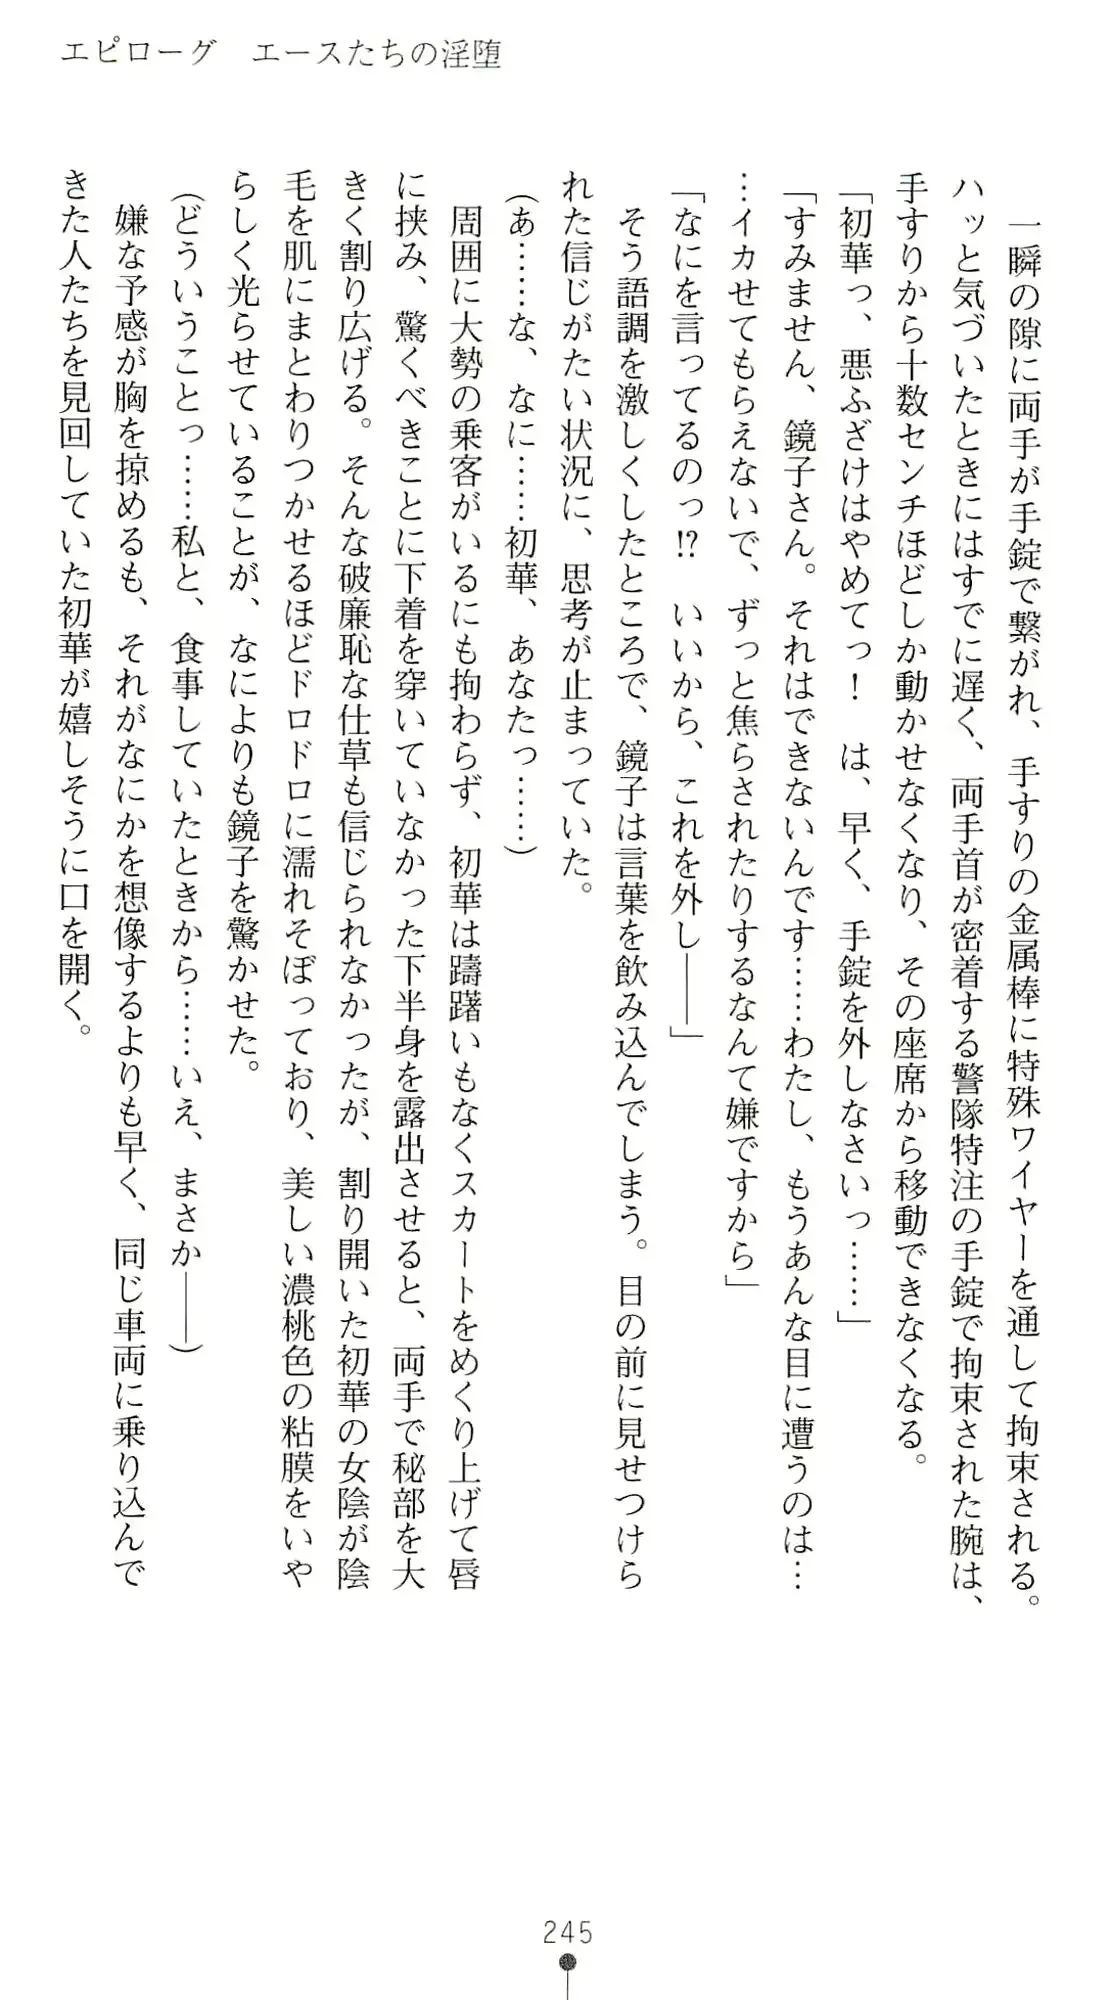 エピローグ　エースたちの淫堕
一瞬の隙に両手が手錠で繋がれ、手すりの金属棒に特殊ワイヤーを通して拘束される。
ハッと気づいたときにはすでに遅く、両手首が密着する警隊特注の手錠で拘束された腕は、
手すりから十数センチほどしか動かせなくなり、その座席から移動できなくなる。
「初華っ、悪ふざけはやめてっ！　は、早く、手錠を外しなさいっ……」
「すみません、鏡子さん。それはできないんです……わたし、もうあんな目に遭うのは…
…イカせてもらえないで、ずっと焦らされたりするなんて嫌ですから」
「なにを言ってるのっ!?　いいから、これを外し――」
そう語調を激しくしたところで、鏡子は言葉を飲み込んでしまう。目の前に見せつけら
れた信じがたい状況に、思考が止まっていた。
（あ……な、なに……初華、あなたっ……）
周囲に大勢の乗客がいるにも拘わらず、初華は躊躇いもなくスカートをめくり上げて唇
に挟み、驚くべきことに下着を穿いていなかった下半身を露出させると、両手で秘部を大
きく割り広げる。そんな破廉恥な仕草も信じられなかったが、割り開いた初華の女陰が陰
毛を肌にまとわりつかせるほどドロドロに濡れそぼっており、美しい濃桃色の粘膜をいや
らしく光らせていることが、なによりも鏡子を驚かせた。
（どういうことっ……私と、食事していたときから……いえ、まさか――）
嫌な予感が胸を掠めるも、それがなにかを想像するよりも早く、同じ車両に乗り込んで
きた人たちを見回していた初華が嬉しそうに口を開く。
245